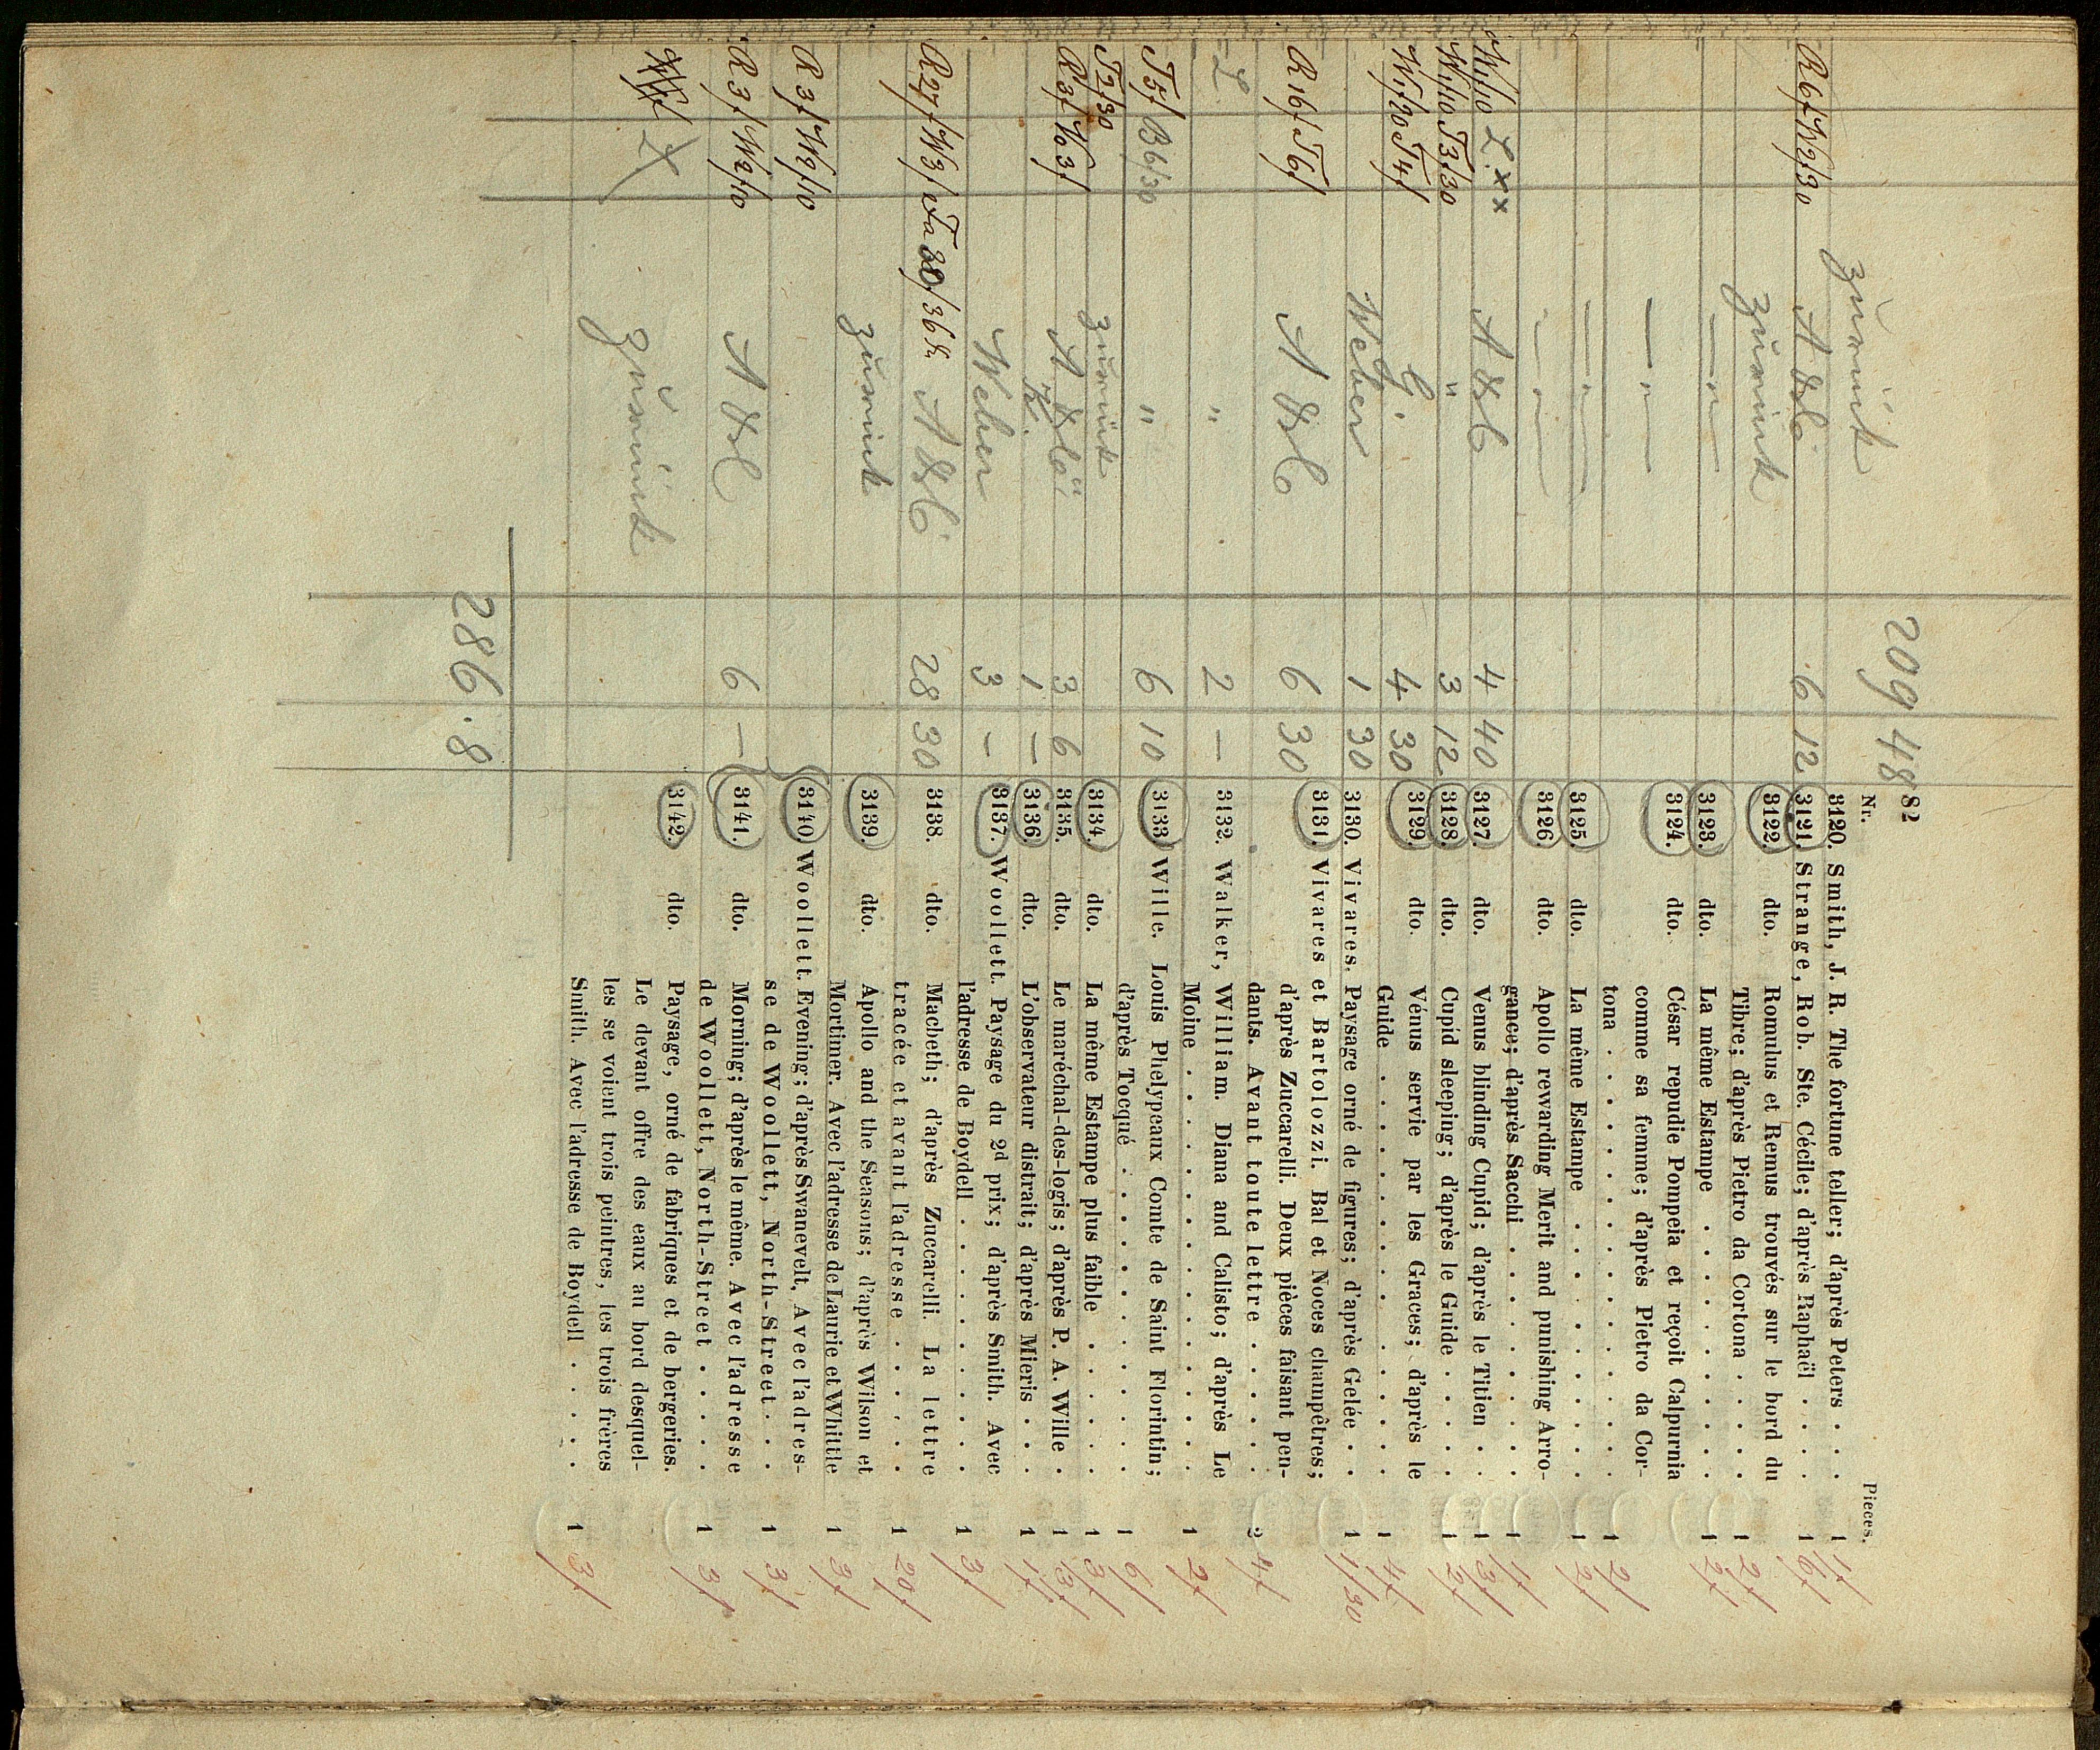 209 48 82
Nr. Pieces.
zurück 3120. Smith, J. R. The fortune teller; d'après Peters . . . 1 1/
R 6f W2/30 A & C 6 12 3121. Strange, Rob. Ste. Cécile; d'après Raphaël . . . . 1 6/
zurück 3122. dto. Romulus et Remus trouvés sur le bord du
Tibre; d'après Pietro da Cortona . . . . 1 2/
— " — 3123. dto. La même Estampe . . . . . . . . . 1 2/
— " — 3124. dto. César repudie Pompeia et reçoit Calpurnia
comme sa femme; d'après Pietro da Cor-
tona . . . . . . . . . . . . . . 1 2/
— " — 3125. dto. La même Estampe . . . . . . . . . 1 2/
— " — 3126. dto. Apollo rewarding Merit and punishing Arro-
gance; d'après Sacchi . . . . . . . . 1 1/
W1/10 L. x x A & C 4 40 3127. dto. Venus blinding Cupid; d'après le Titien . . 1 3/
W1/10 T3/30 " 3 12 3128. dto. Cupid sleeping; d'après le Guide . . . . 1 2/
W1/20 T4/ G. 4 30 3129. dto. Vénus servie par les Graces; d'après le
Guide . . . . . . . . . . . . . 1 4/
Weber 1 30 3130. Vivares. Paysage orné de figures; d'après Gelée . . 1 1/30
R 16/ T6/ A & C 6 30 3131. Vivares et Bartolozzi. Bal et Noces champêtres;
d'après Zuccarelli. Deux pièces faisant pen-
dants. Avant toute lettre . . . . . 2 4/
- L. " 2 — 3132. Walker, William. Diana and Calisto; d'après Le
Moine . . . . . . . . . . . . . 1 2/
T5/ B6/30 " 6 10 3133. Wille. Louis Phelypeaux Comte de Saint Florintin;
d'après Tocqué . . . . . . . . . . 1 6/
T2/30 zurück 3134. dto. La même Estampe plus faible . . . . . 1 3/
R 3/ W3/ A & C 3 6 3135. dto. Le maréchal-des-logis; d'après P. A. Wille . 1 3/
1 — 3136. dto. L'observateur distrait; d'après Mieris . . . 1 1/
Weber 3 — 3137. Woollett. Paysage du 2d prix; d'après Smith. Avec
l'adresse de Boydell . . . . . . . . 1 3/
R27/ W3/ Ta 30/36 k. A & C 28 30 3138. dto. Macbeth; d'après Zuccarelli. La lettre
tracée et avant l'adresse . . . . . 1 20/
zurück 3139. dto. Apollo and the Seasons; d'après Wilson et
Mortimer. Avec l'adresse de Laurie et Whittle 1 3/
R 3/ W2/10 3140. Woollett. Evening; d'après Swanevelt. Avec l'adres-
se de Woollett, North-Street . . . 1 3/
R 3/ W2/10 A & C 6 — 3141. dto. Morning; d'après le même. Avec l'adresse
de Woollett, North-Street . . . . 1 3/
zurück 3142. dto. Paysage, orné de fabriques et de bergeries.
Le devant offre des eaux au bord desquel-
les se voient trois peintres, les trois frères
Smith. Avec l'adresse de Boydell . . . . 1 3/
286.8